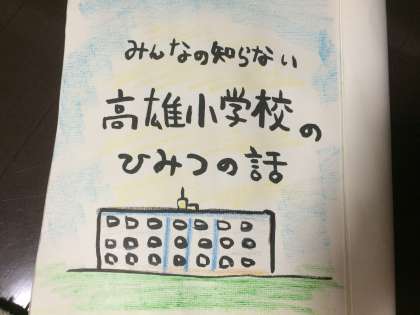 みんなの知らない
高雄小学校の
ひみつの話